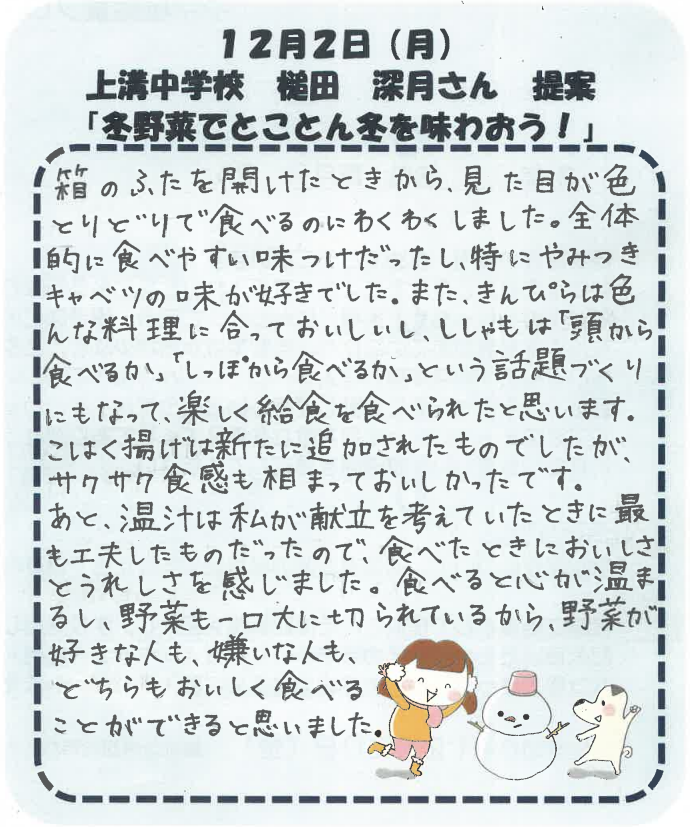 12月2日（月）
上溝中学校　槌田　深月さん　提案
「冬野菜でとことん冬を味わおう！」
箱のふたを開けたときから、見た目が色
とりどりで食べるのにわくわくしました。全体
的に食べやすい味つけだったし、特にやみつき
キャベツの味が好きでした。また、きんぴらは色
んな料理に合っておいしいし、ししゃもは「頭から
食べるか」「しっぽから食べるか」という話題づくり
にもなって、楽しく給食を食べられたと思います。
こはく揚げは新たに追加されたものでしたが、
サクサク食感も相まっておいしかったです。
あと、温汁は私が献立を考えていたときに最
も工夫したものだったので、食べたときにおいしさ
とうれしさを感じました。食べると心が温ま
るし、野菜も一口大に切られているから、野菜が
好きな人も、嫌いな人も、
どちらもおいしく食べる
ことができると思いました。